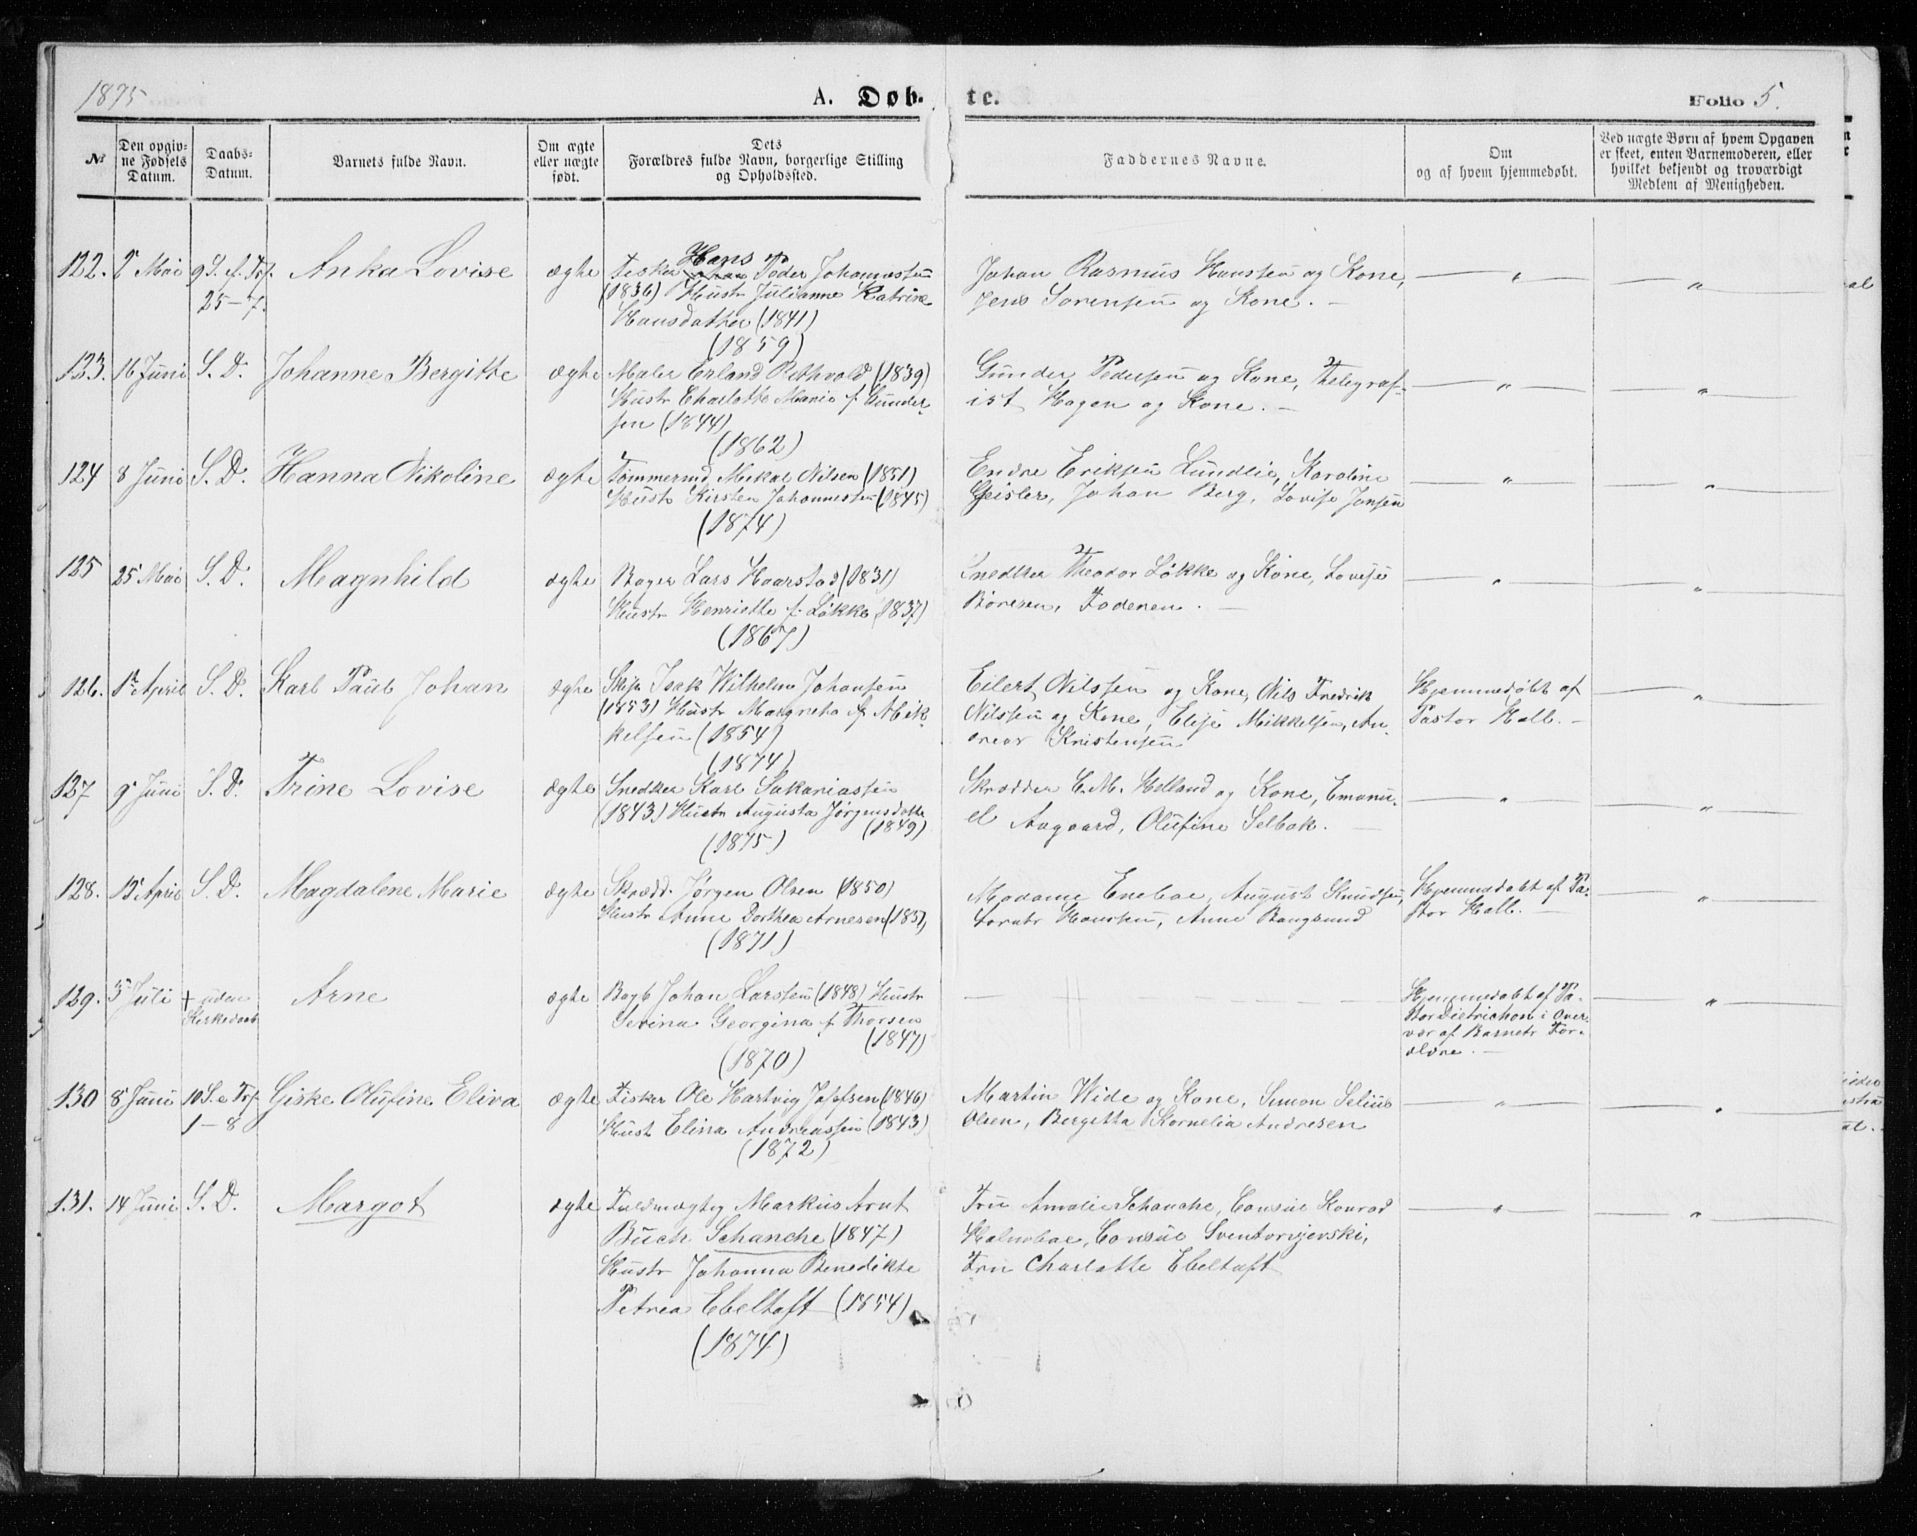 1875
A. Døb-
te.
Folio 5.
№
Den opgiv-
ne Fødsels
Datum.
Daabs-
Datum.
Varnets fulde Navn.
Om ægte
eller uægte
født.
Dets
Forældres fulde Navn, borgerlige Stilling
og Opholdssted.
Faddernes Navne.
Om
og af hvem hjemmedøbt.
Ved uægte Børn af hvem Opgaven
er skeet, enten Barnemoderen, eller
hvilket bekjendt og troværdigt
Medlem af Menigheden.
122. Mai 9 S. e. Tref. Anka Lovise ægte Fisker Hans Peder Johannessen
25-7. (1836) Hustr Julianne Katrine
Hansdatter (1841)
(1859)
Johan Rasmus Hansen og Kone,
Jens Sørensen og Kone. -
123. 16 Juni S. D. Johanne Bergitte ægte Maler Erland Rethvold (1839)
Hustr Charlotte Marie f. Gunder-
sen (1844)
(1862)
Gunder Pedersen og Kone, Telegraf-
ist Hagen og Kone. -
124 8 Juni S. D. Hanna Nikoline ægte Tømmermd Mekal Nilsen (1851)
Hustr Kirsten Johannessen (1845)
(1874)
Endre Eriksen Lundlie, Karoline
Geisler, Johan Berg, Lovise Jensen
125 25 Mai S. D. Magnhild ægte Bager Lars Haarstad (1831)
Hustr Henriette f. Løkke (1837)
(1867)
Snedker Theodor Løkke og Kone, Lovise
Børresen, Faderen. -
126. 1 April S. D. Karl Paul Johan ægte Skip. Isak Wilhelm Johansen
(1853) Hustr Margreta f. Mik-
kelsen (1854)
(1874)
Eilert Nilssen og Kone, Nils Fredrik
Nilssen og Kone, Elise Mikkelsen, An-
dreas Kristensen
Hjemmedøbt af
Pastor Hall. -
127 9 Juni S. D. Trine Lovise ægte Snedker Karl Sakariassen
(1843) Hustr Augusta Jørgensdatte
(1849)
(1875)
Skrædder E. M. Helland og Kone, Emanu-
el Aagaard, Olufine Selbak. -
128. 12 April S. D. Magdalene Marie ægte Skrædd. Jørgen Olsen (1850)
Hustr Anne Dorthea Arnesen (185)
(1871)
Madame Enebae, August Knudsen,
Hansen, Anne Bangsund
Hjemmedøbt af Pa-
stor Hall. -
129. 5 Juli + uden Arne ægte Bagb Johan Larssen (1848) Hustr
Kirkedaab Serina Georgina f. Thorsen
(1847)
(1870)
Hjemmedøbt af Pa-
stor Dietrichson i Over-
vær af Barnets For-
ældre. -
130 8 Juni 10 S. e Tref. Giske Olufine Elira ægte Fisker Ole Hartvig Jakobsen (1846)
1-8 Hustr Elina Andreassen (1843)
(1872)
Martin Wide og Kone, Simon Selius
Olsen, Bergitta Kornelia Andresen
131. 14 Juni S. D. Margot ægte Fuldmægtig Markus Arnt
Buch Schanche (1847)
Hustr Johanna Benedikte
Petrea Ebeltoft (1854)
(1874)
Fru Amalie Schanche, Consul Konrad
Holmboe, Consul Sventorzjevski,
Fru Charlotte Ebeltoft